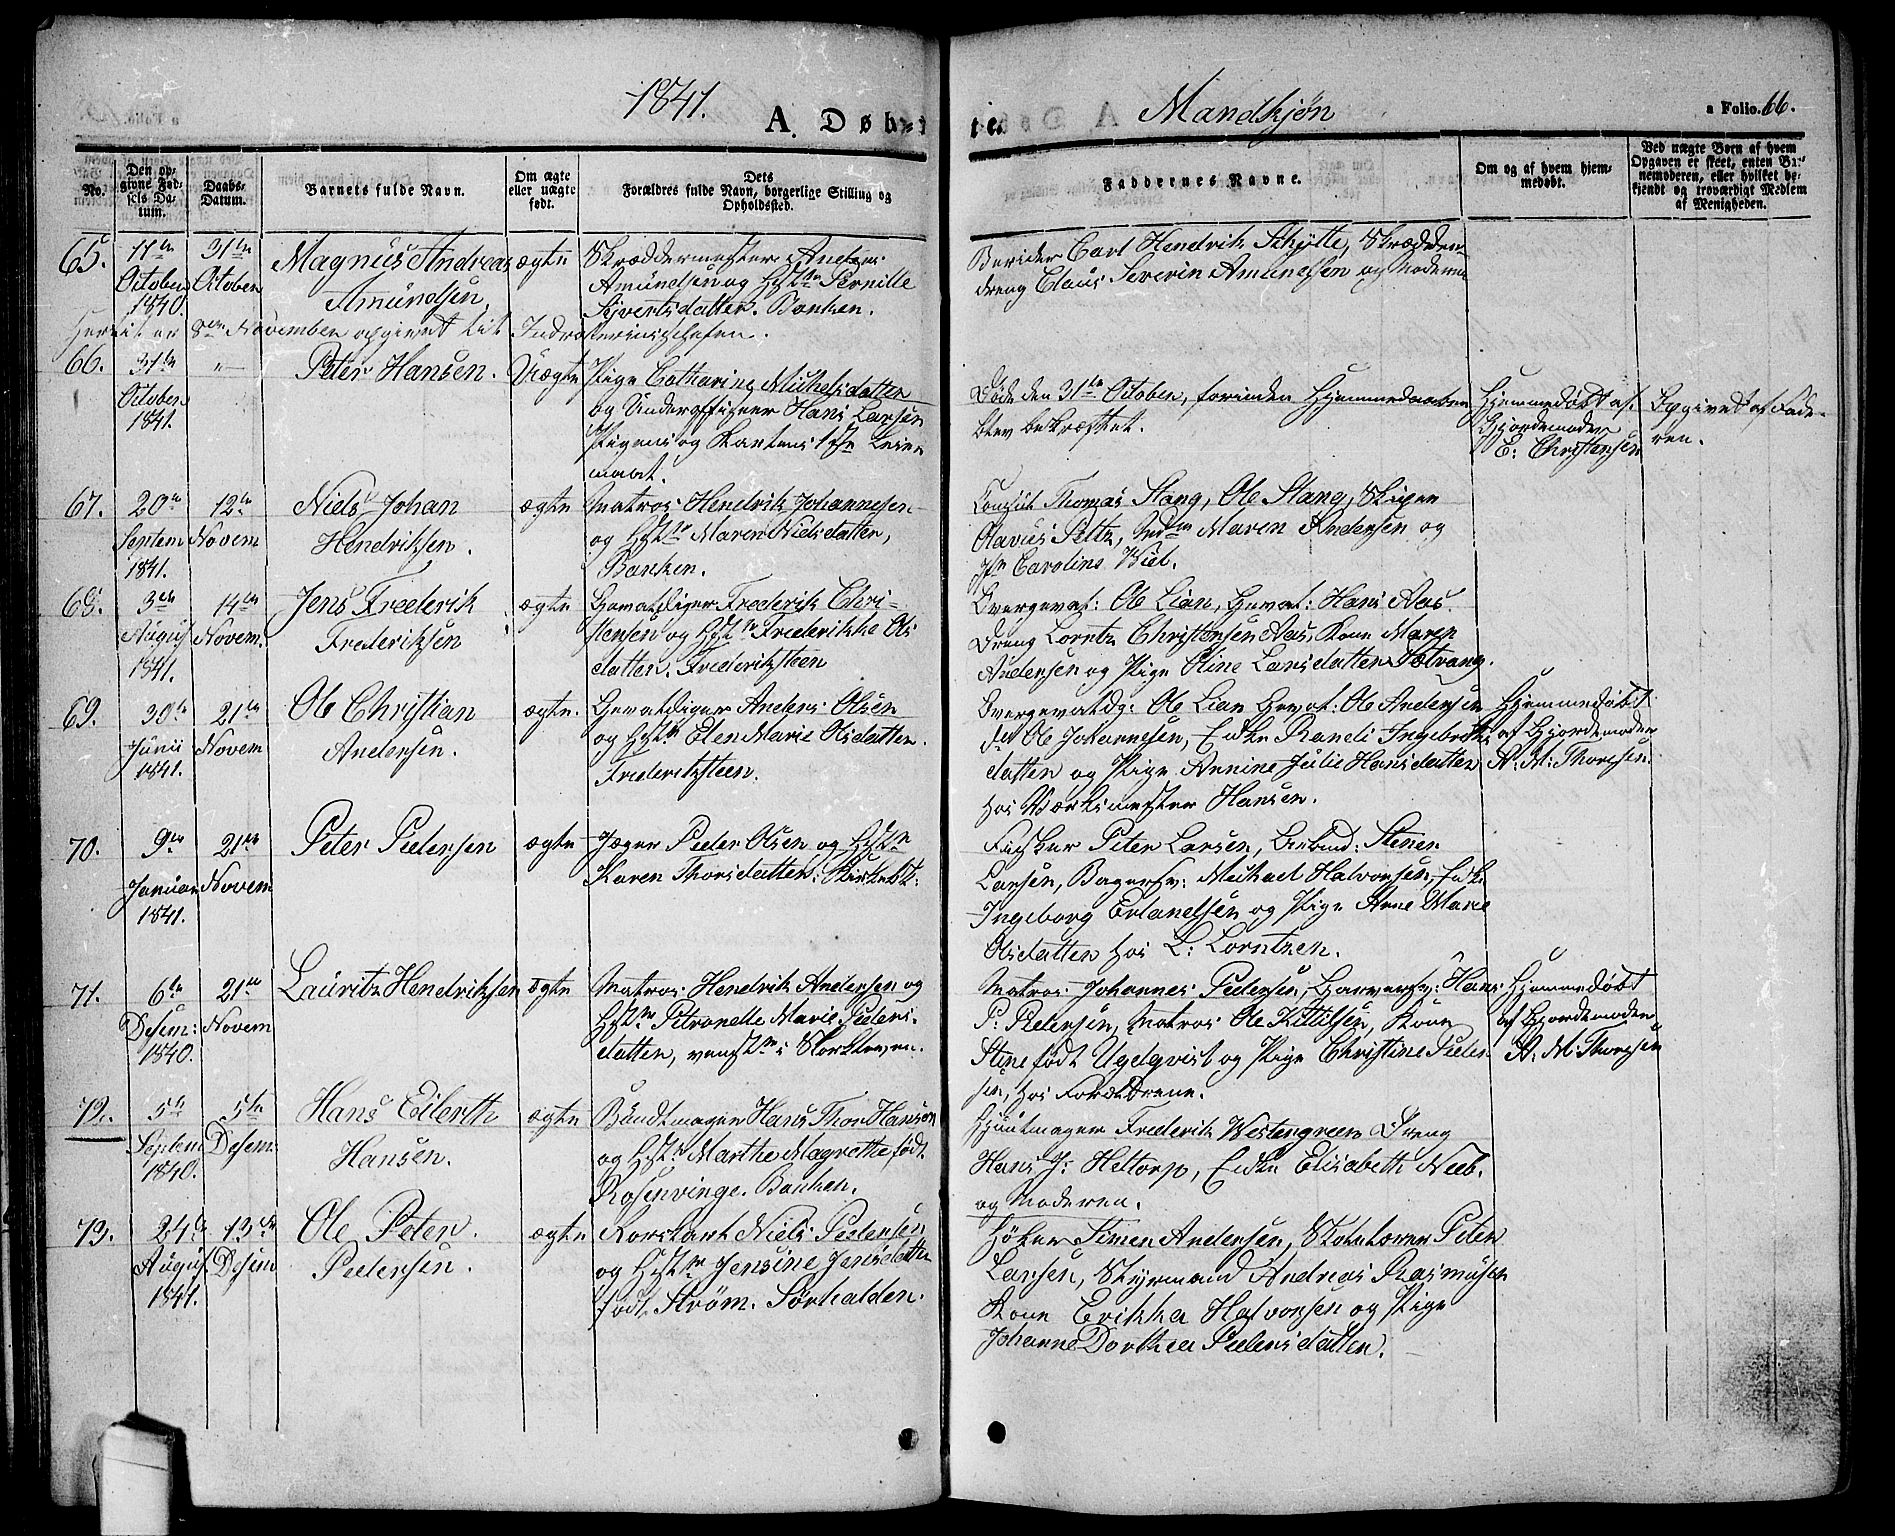 1841.
A. Døbte. Mandkjøn
a Folio. 66.
No.
Den opgivne Fødsels Datum.
Daabs-Datum.
Barnets fulde Navn.
Om ægte eller uægte født.
Dets Forældres fulde Navn, borgerlige Stilling og Opholdssted.
Faddernes Navne.
Om og af hvem hjemmedøbt.
Ved uægte Børn af hvem Opgaven er skeet, enten Barnemoderen, eller hvilket bekjendt og troværdigt Medlem af Menigheden.
65. 11te October 1840. 31te October
Magnus Andreas
Amundsen.
ægte
Skræddermester Anders
Amundsen og Hst. Pernille
Syvertsdatter. Banken.
Berider Carl Hendrik Schytte, Skrædder
dreng Claus Severin Amundsen og Moderen
Hertil er 8de November opgivet til Indrulleringschefen.
66. 31te October 1841. "
Peter Hansen.
Uægte
Pige Cathrine Mikkelsdatter
og Underofficeer Hans Larsen
Pigens og Karlens 1ste Leier
maal.
Døde den 31te October, forinden Hjemmedaaben
blev bekræftet.
Hjemmedøbt af
Gjordemoder
E. Christensen
Opgivet af Fade-
ren.
67. 20de Septem 1841. 12te Novem
Niels Johan
Hendriksen.
ægte
Matros Hendrik Johannesen
og Hst. Maren Nielsdatter,
Banken.
Consul Thomas Stang, Ole Stang, Skipper
Olavus Peltz, Md. Maren Andersen og
Jfr Caroline Wiel.
68. 3die August 1841. 14de Novem.
Jens Frederik
Frederiksen
ægte
Gevaldiger Frederik Chri-
stensen og Hst. Frederikke Ols
datter. Frederiksteen
Overgeval: Ole Lian, Geval: Hans Aas.
Dreng Lorntz Christensen Aas, Kone Maren
Andersen og Pige Oline Larsdatter Sætvang.
69. 30te Junii 1841. 21de Novem
Ole Christian
Andersen.
ægte.
Gevaldiger Anders Olsen
og Hst. Elen Marie Olsdatter.
Frederiksteen.
Overgevaldg: Ole Lian Geval: Ole Andersen
do Ole Johannesen, Enke Randi Ingebrets
datter og Pige Annine Julie Hansdatter
hos Værksmester Hansen.
Hjemmedøbt
af Gjordemoder
A: M: Thoresen.
70. 9de Januar 1841. 21de Novem
Peter Pedersen
ægte
Jæger Peder Olsen og Hst.
Karen Thorsdatter:
Fisker Peter Larsen, Stener
Larsen, Bagersv: Michael Halvorsen, Enke
Ingeborg Erlandsen og Pige Anne Marie
Olsdatter hos L: Lorntzen.
71. 6te Desem: 1840. 21de Novem
Lauritz Hendriksen
ægte
Matros Hendrik Andersen og
Hst. Petronelle Marie Peders-
datter,
Matros Johannes Pedersen, Garversv: Hans
P: Pedersen, Matros Ole Kittilsen, Kone
Stine født Ugelqvist og Pige Christine Peder
sen, hos Forældrene.
Hjemmedøbt
af Gjordemoder
A: M: Thoresen
72. 5te Septem 1840. 5te Desem.
Hans Eilerth
Hansen.
ægte
Bundtmager Hans Thor Hansen
og Hst. Marthe Magrethe født
Rosenvinge. Banken.
Frederik Westengreen Dreng
Hans J: Heltorp, Enke Elisabeth Neeb.
og Moderen.
73. 24de August 1841. 13de Desem
Ole Peter
Pedersen.
ægte
Niels Pedersen
og Hst. Jensine Jensdatter
født Strøm. Sørhalden.
Høker Simen Andersen, Peter
Larsen, Styrmand Andreas Rasmusen
Kone Erikka Halvorsen og Pige
Johanne Dorthea Pedersdatter.